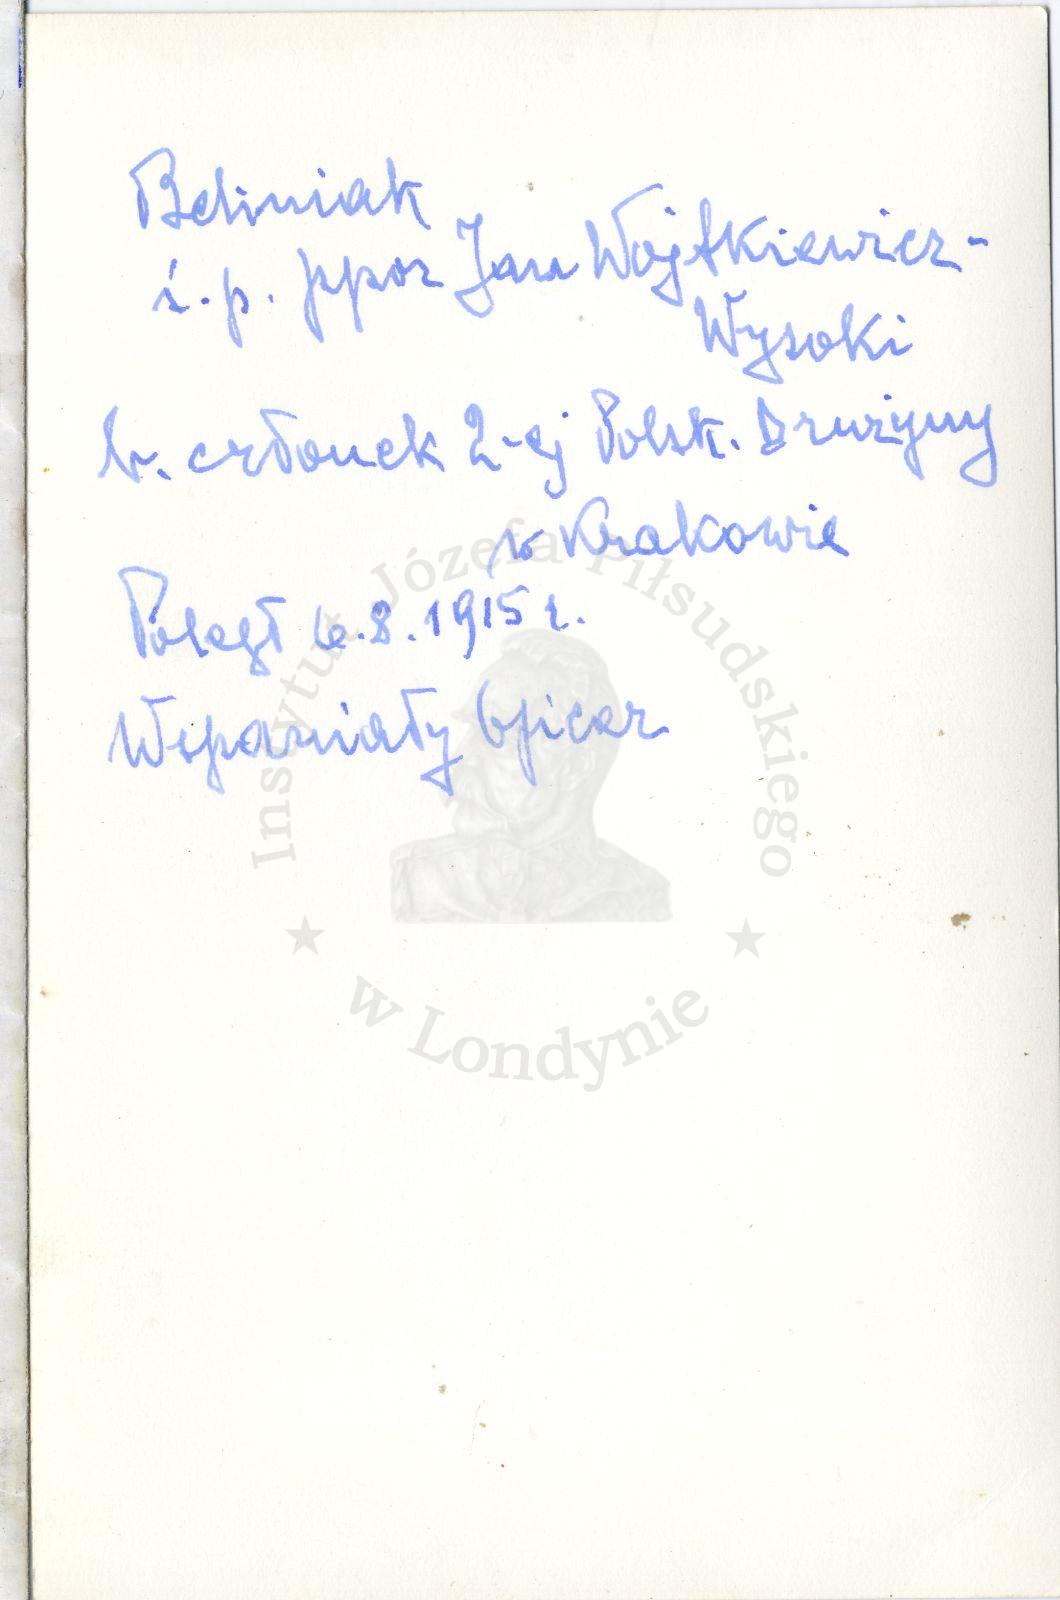 Beliniak
ś. p. ppor Jan Wojtkiewicz-
Wysoki
b. członek 2-ej Polsk. Drużyny
w Krakowie
Poległ 6.8.1915 r.
Wspaniały Oficer
Instytut Józefa Piłsudskiego
w Londynie